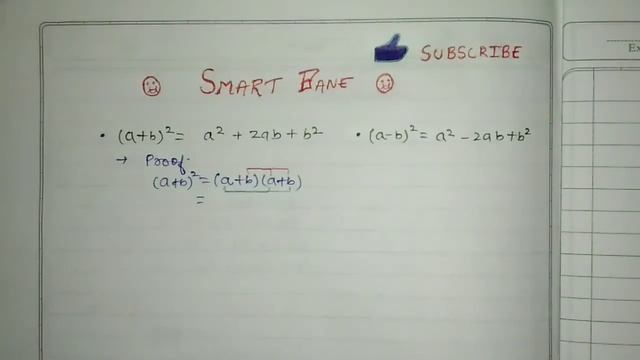 SUBSCRIBE
SMART BANE
• (a+b)² = a² + 2ab + b²
• (a-b)² = a² - 2ab + b²
→ Proof.
(a+b)² = (a+b)(a+b)
=